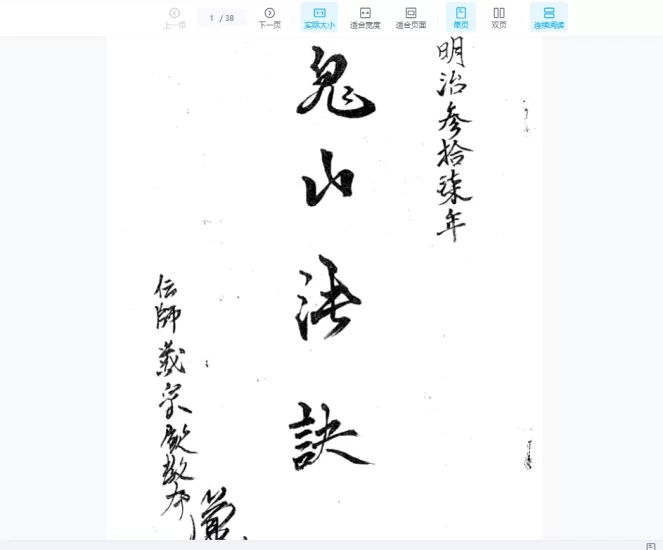 上一页
1 / 38
下一页
实际大小
适合宽度
适合页面
单页
双页
连续阅读
明治参拾柒年
鬼山法訣
伝師戴宗